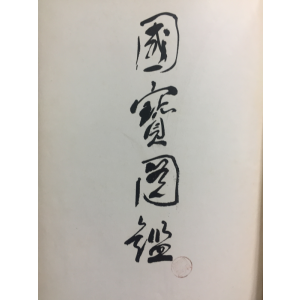 國寶圖鑑